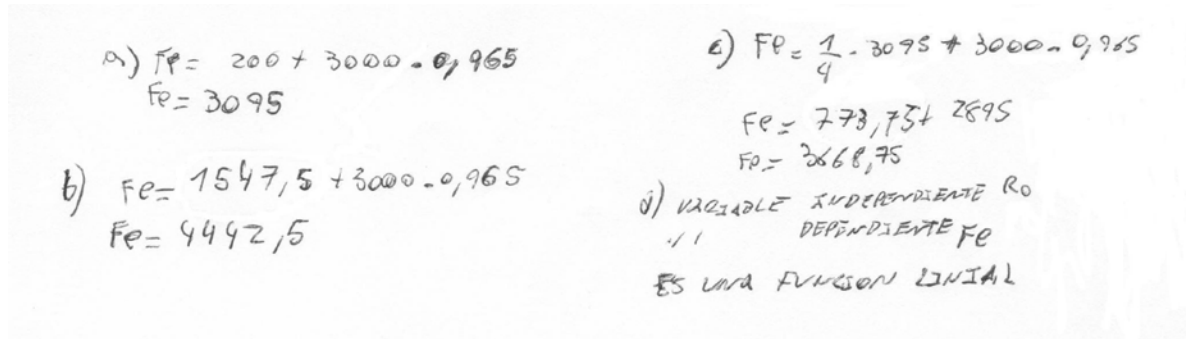 a) Fe = 200 + 3000 . 0,965
Fe = 3095
b) Fe = 1547,5 + 3000 . 0,965
Fe = 4442,5
c) Fe = 1/4 . 3095 + 3000 . 0,965
Fe = 773,75 + 2895
Fe = 3668,75
d) VARIABLE INDEPENDIENTE Ro
" DEPENDIENTE Fe
ES UNA FUNCION LINIAL